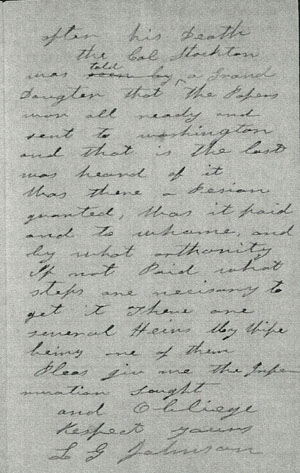 after his Death
the Col Stockton
was told by a Grand
Daugter that the Papers
wer all ready and
sent to washington
and that is the last
was heard of it
Was there a Pesion
granted, Was it paid
and to whome, and
by what authority
If not Paid what
steps are necisary to
get it There are
several Heirs My Wife
being one of them
Pleas giv me the Infor
mation sought
and Obliege
Respect yours
L G Johnson